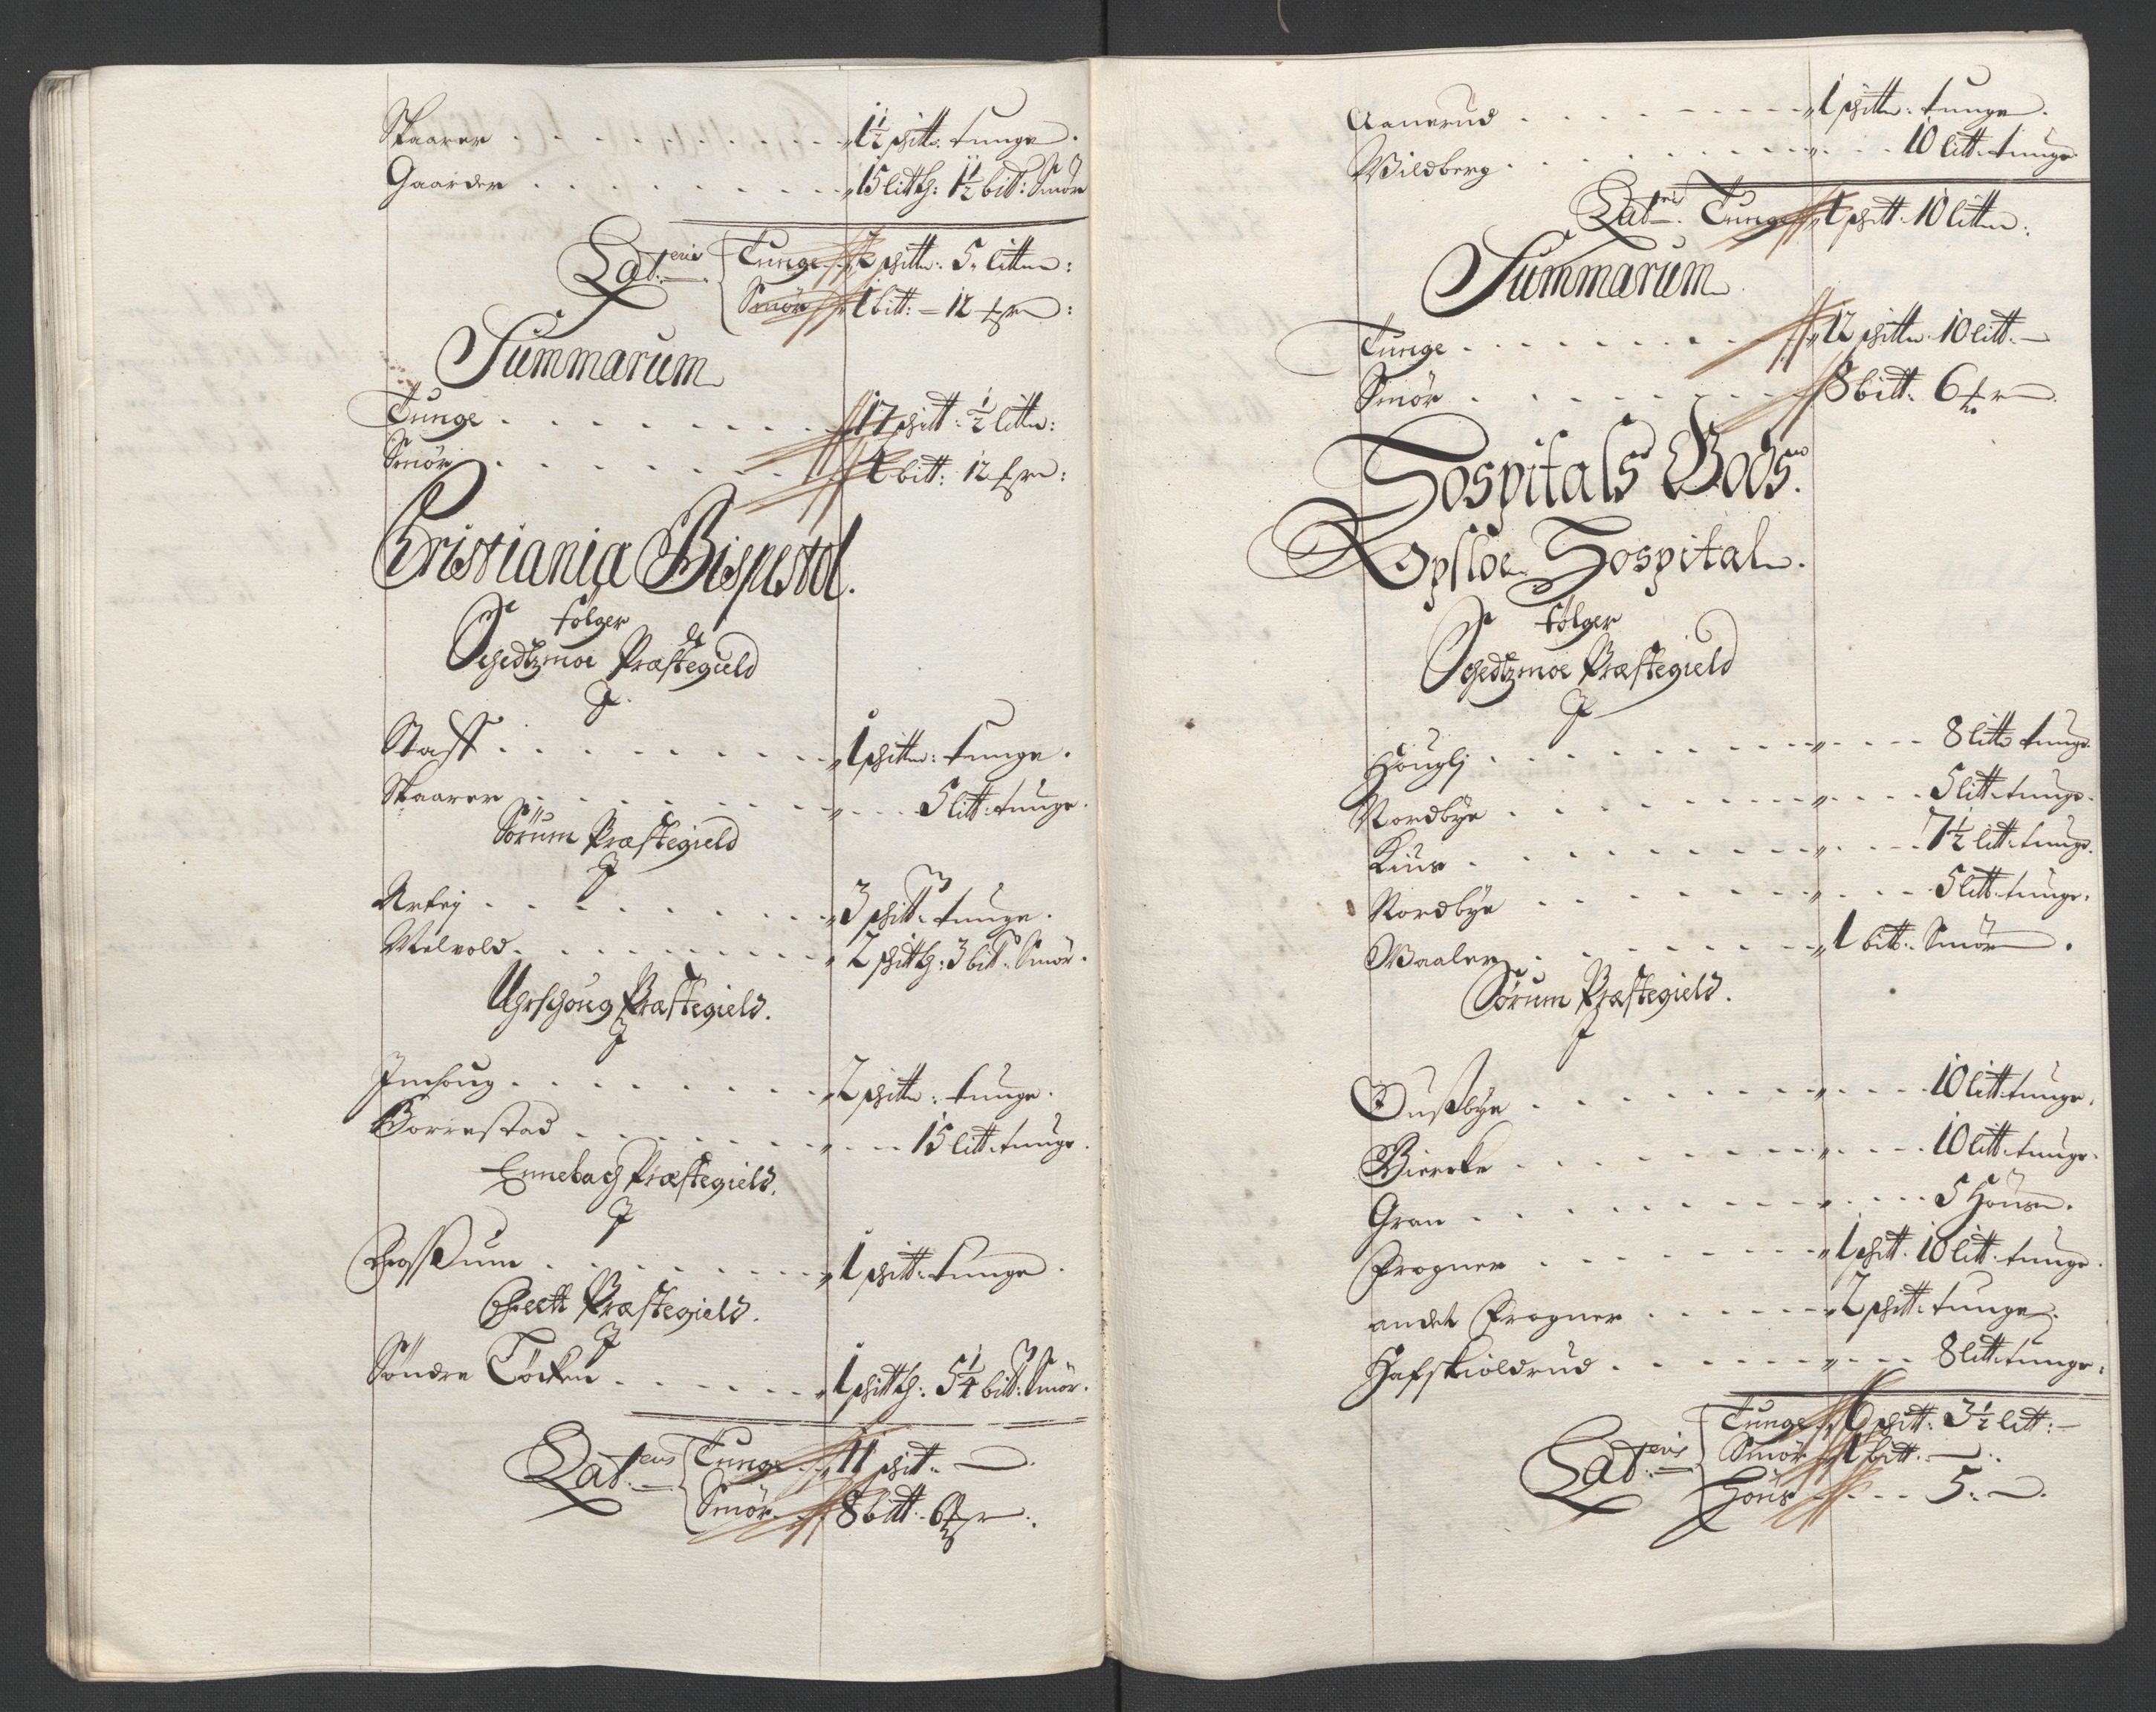 Skaarer . . . . . . . . . . „ 1½ schitt: tunge .
Gaarder . . . . . . . . . . „ 15 litth: 1½ bitt: Smör
Lateris Tunge „ 2 schitt: 5 litt:
Smör „ 1 bitt: – 12
Summarum
Tunge . . . . . . . . . „ 17 schitt: ½ litt:
Smör . . . . . . . . . „ 4 bitt: 12
Christiania Bispestol.
følger
Schedtzmoe Præstegield
J
Staff . . . . . . . . . „ 1 schitt: tunge .
Skaarer . . . . . . . . „ . . . 5 litt: tunge .
Sörum Præstegield
J
Arteig . . . . . . . . . „ 3 schitt: tunge .
Melvold . . . . . . . . . „ 2 schitth: 3 bitt: Smör .
Uhrschoug Præstegield.
J
Imshoug . . . . . . . . . „ 2 schitt: tunge .
Borrestad . . . . . . . „ . . . 15 litt: tunge .
Ennebach Præstegield.
J
. . . . . . . . „ 1 schitt: tunge .
Fheett Præstegield.
J
Söndre Töcken . . . . . . „ 1 schitth: 5¼ bitt: Smör .
Lateris Tunge „ 11 schitt: –
Smör „ 8 bitt: 6
Aanerud . . . . . . . . . „ 1 schitt: tunge .
Wildberg . . . . . . . . „ . . . 10 litt: tunge
Lateris Tunge „ 1 schitt: 10 litt:
Summarum
Tunge . . . . . . . . . „ 12 schitt: 10 litt: –
Smör . . . . . . . . . „ 8 bitt: 6
Hospitals Gods.
Opsloe Hospital.
følger
Schedtzmoe Præstegield
J
Houglj . . . . . . . . „ . . . 8 litt: tunge
Nordbye . . . . . . . . „ . . . 5 litt: tunge .
Kius . . . . . . . . . „ . . . 7½ litt: tunge .
Nordbye . . . . . . . . „ . . . 5 litt: tunge .
Waaler . . . . . . . . „ 1 bitt: Smör .
Sörum Præstegield.
J
. . . . . . . . „ . . . 10 litt: tunge .
Biercke . . . . . . . . „ . . . 10 litt: tunge .
Gran . . . . . . . . . „ . . . 5 Houser .
Frogner . . . . . . . . „ 1 schitt: 10 litt: tunge .
andet Frogner . . . . . „ 2 schitt: tunge .
Hafskioldrud . . . . . . „ . . . 8 litt: tunge :
Lateris Tunge „ 6 schitt: 3½ litt: –
Smör „ 1 bitt: –
Hous . . . . 5. –